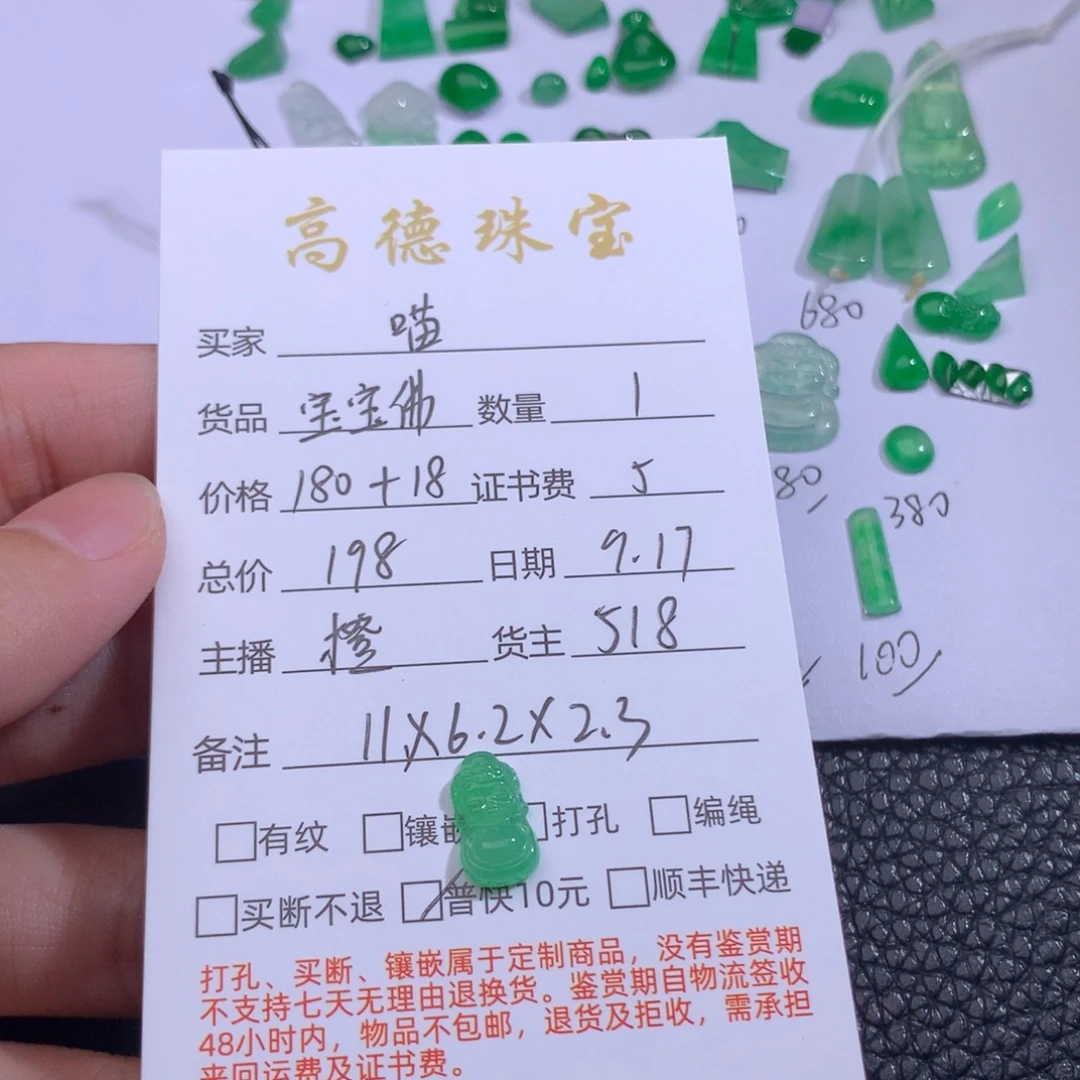 高德珠宝
买家 喵
货品 宝宝佛 数量 1
价格 180+18 证书费 5
总价 198 日期 9.17
主播 橙 货主 518
备注 11×6.2×2.3
□有纹 □镶 □打孔 □编绳
□买断不退 ☑普快10元 □顺丰快递
打孔、买断、镶嵌属于定制商品，没有鉴赏期
不支持七天无理由退换货。鉴赏期自物流签收
48小时内，物品不包邮，退货及拒收，需承担
来回运费及证书费。
680
80
380
100